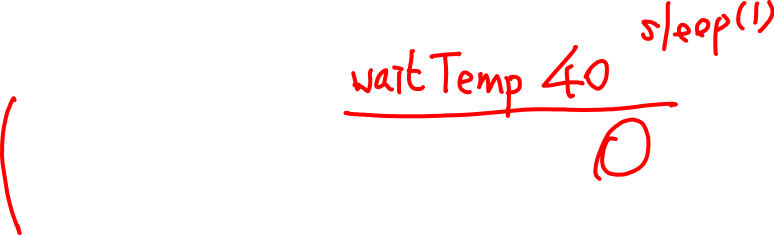 sleep(1)
waitTemp 40
0
(